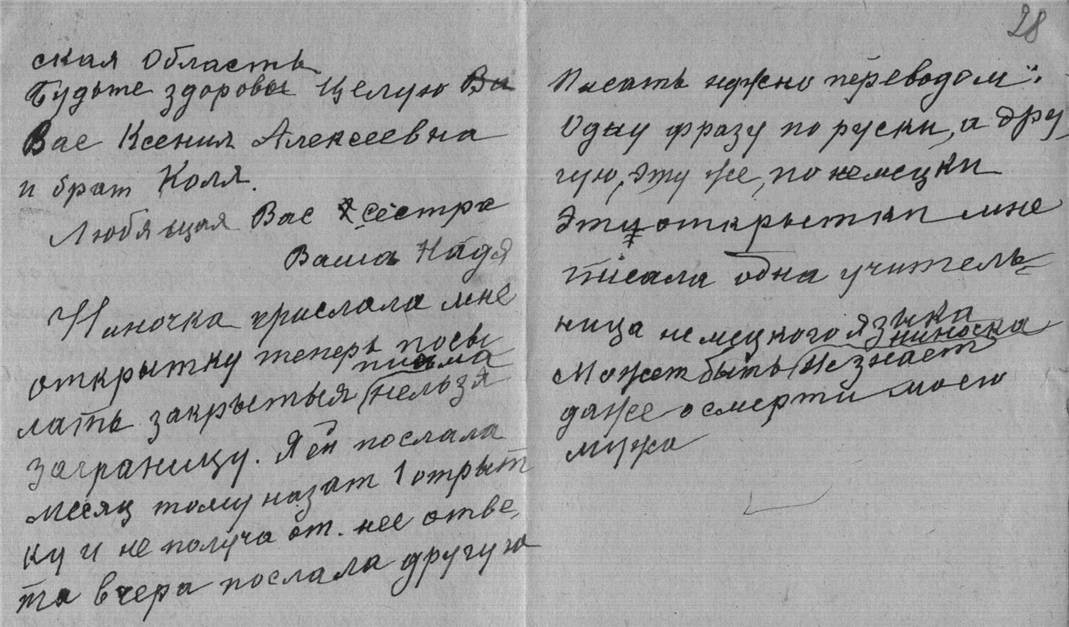 ская Область
Будьте здоровы Целую Ва
Вас Ксения Алексеевна
и брат Коля.
Любящая Вас сестра
Ваша Надя
Ниночка прислала мне
открытку теперь посы
письма
лать закрытыя нельзя
заграницу. Я ей послала
месяц тому назат 1 отрыт
ку и не получа от. нее отве,
та вчера послала другую
28
Писать нужно переводом:
Одну фразу по руски, а дру
гую, эту же, по немецки
Эту открытки мне
писала одна учитель
ница немецкого языка
ниночка
Может быть не знает
даже о смерти моего
мужа